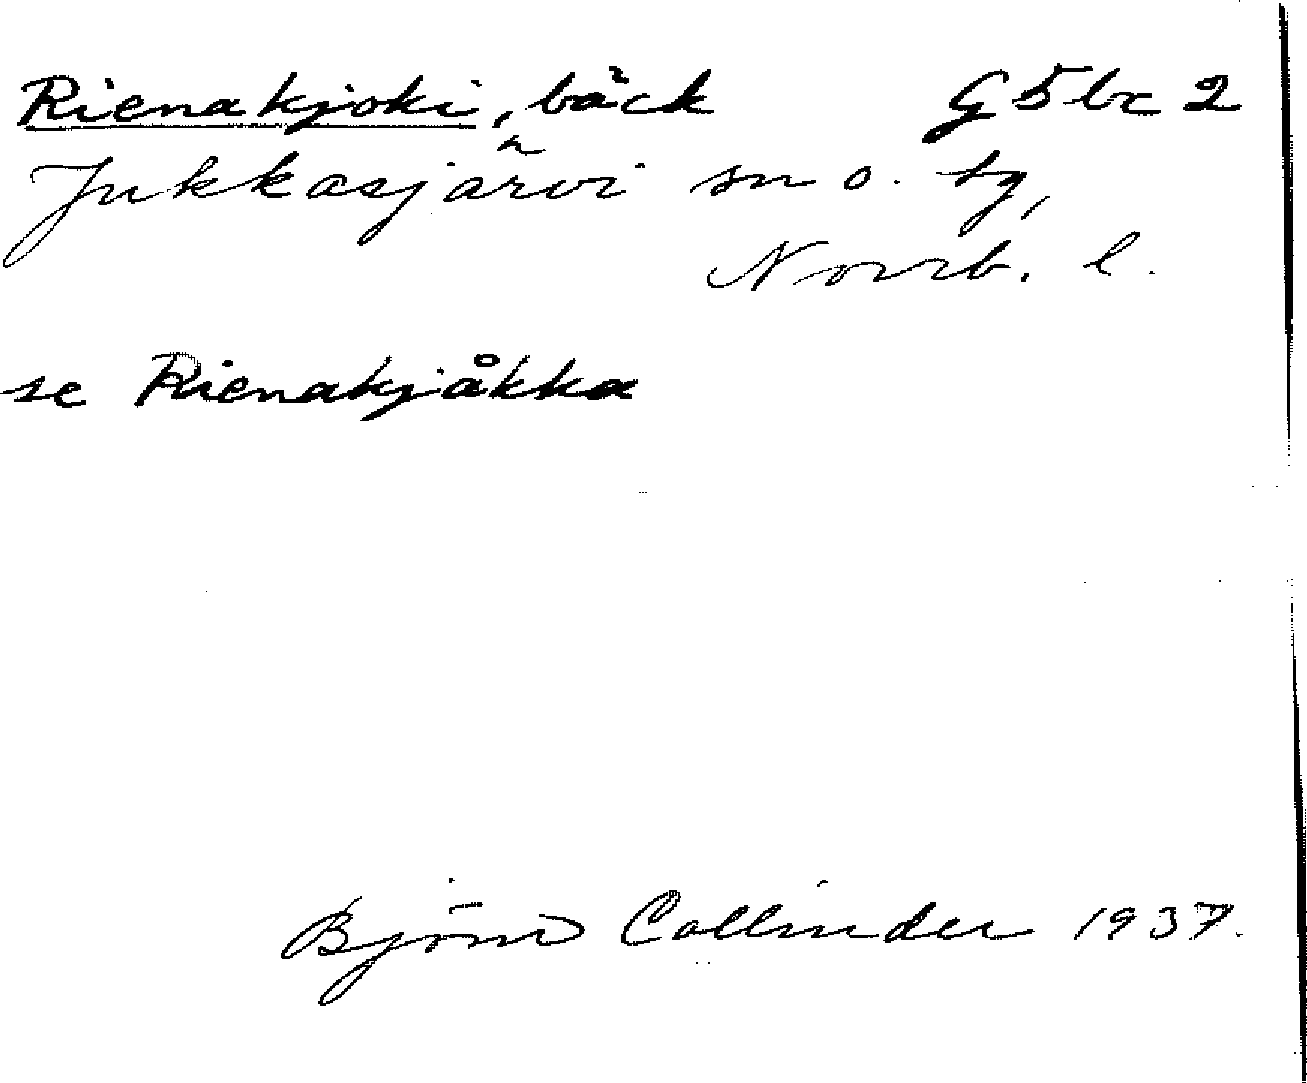 Rienakjoki, bäck G5bc 2
Jukkasjärvi sn o. tg,
Norrb. l.
se Rienakjåkka
Björn Collinder 1937.